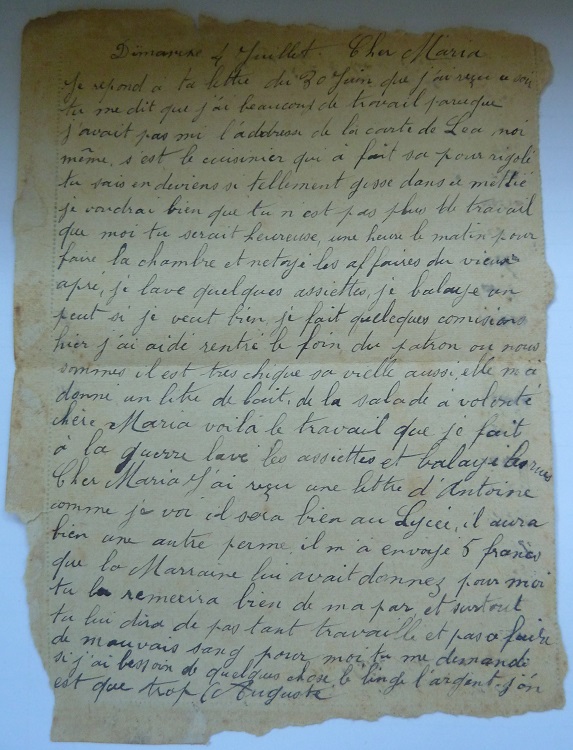 Dimanche 4 Juillet. Cher Maria
Je repond a ta lettre du 30 Juin que j'ai reçu ce soir
tu me dit que j'ai beaucoup de travail parceque
j'avait pas mi l'addresse de la carte de Lea moi
même, s'est le cuisinier qui à fait sa pour rigolé
tu sais en deviens si tellement gosse dans ce metié
je voudrai bien que tu n'est pas plus de travail
que moi tu serait heureuse, une heure le matin pour
faire la chambre et netoyé les affaires du vieux
apré, je lave quelques assiettes, je balaye un
peut si je veut bien, je fait quelecques comisions
hier j'ai aidé rentré le foin du patron ou nous
sommes il est tres chique sa vielle aussi, elle m'a
donné un litre de lait, de la salade à volonté
chère Maria voilà le travail que je fait
à la guerre lavé les assiettes et balayé les rues
Cher Maria J'ai reçu une lettre d'Antoine
comme je voi il sera bien au Lycée, il aura
bien une autre perme, il m'a envoyé 5 francs
que la Marraine lui avait donnez pour moi
tu la remecira bien de ma par, et surtout
tu lui dira de pas tant travaille et pas se faire
de mauvais sang pour moi tu me demande
si j'ai bessoin de quelques chose le linge l'argent j'en
est que trop Auguste